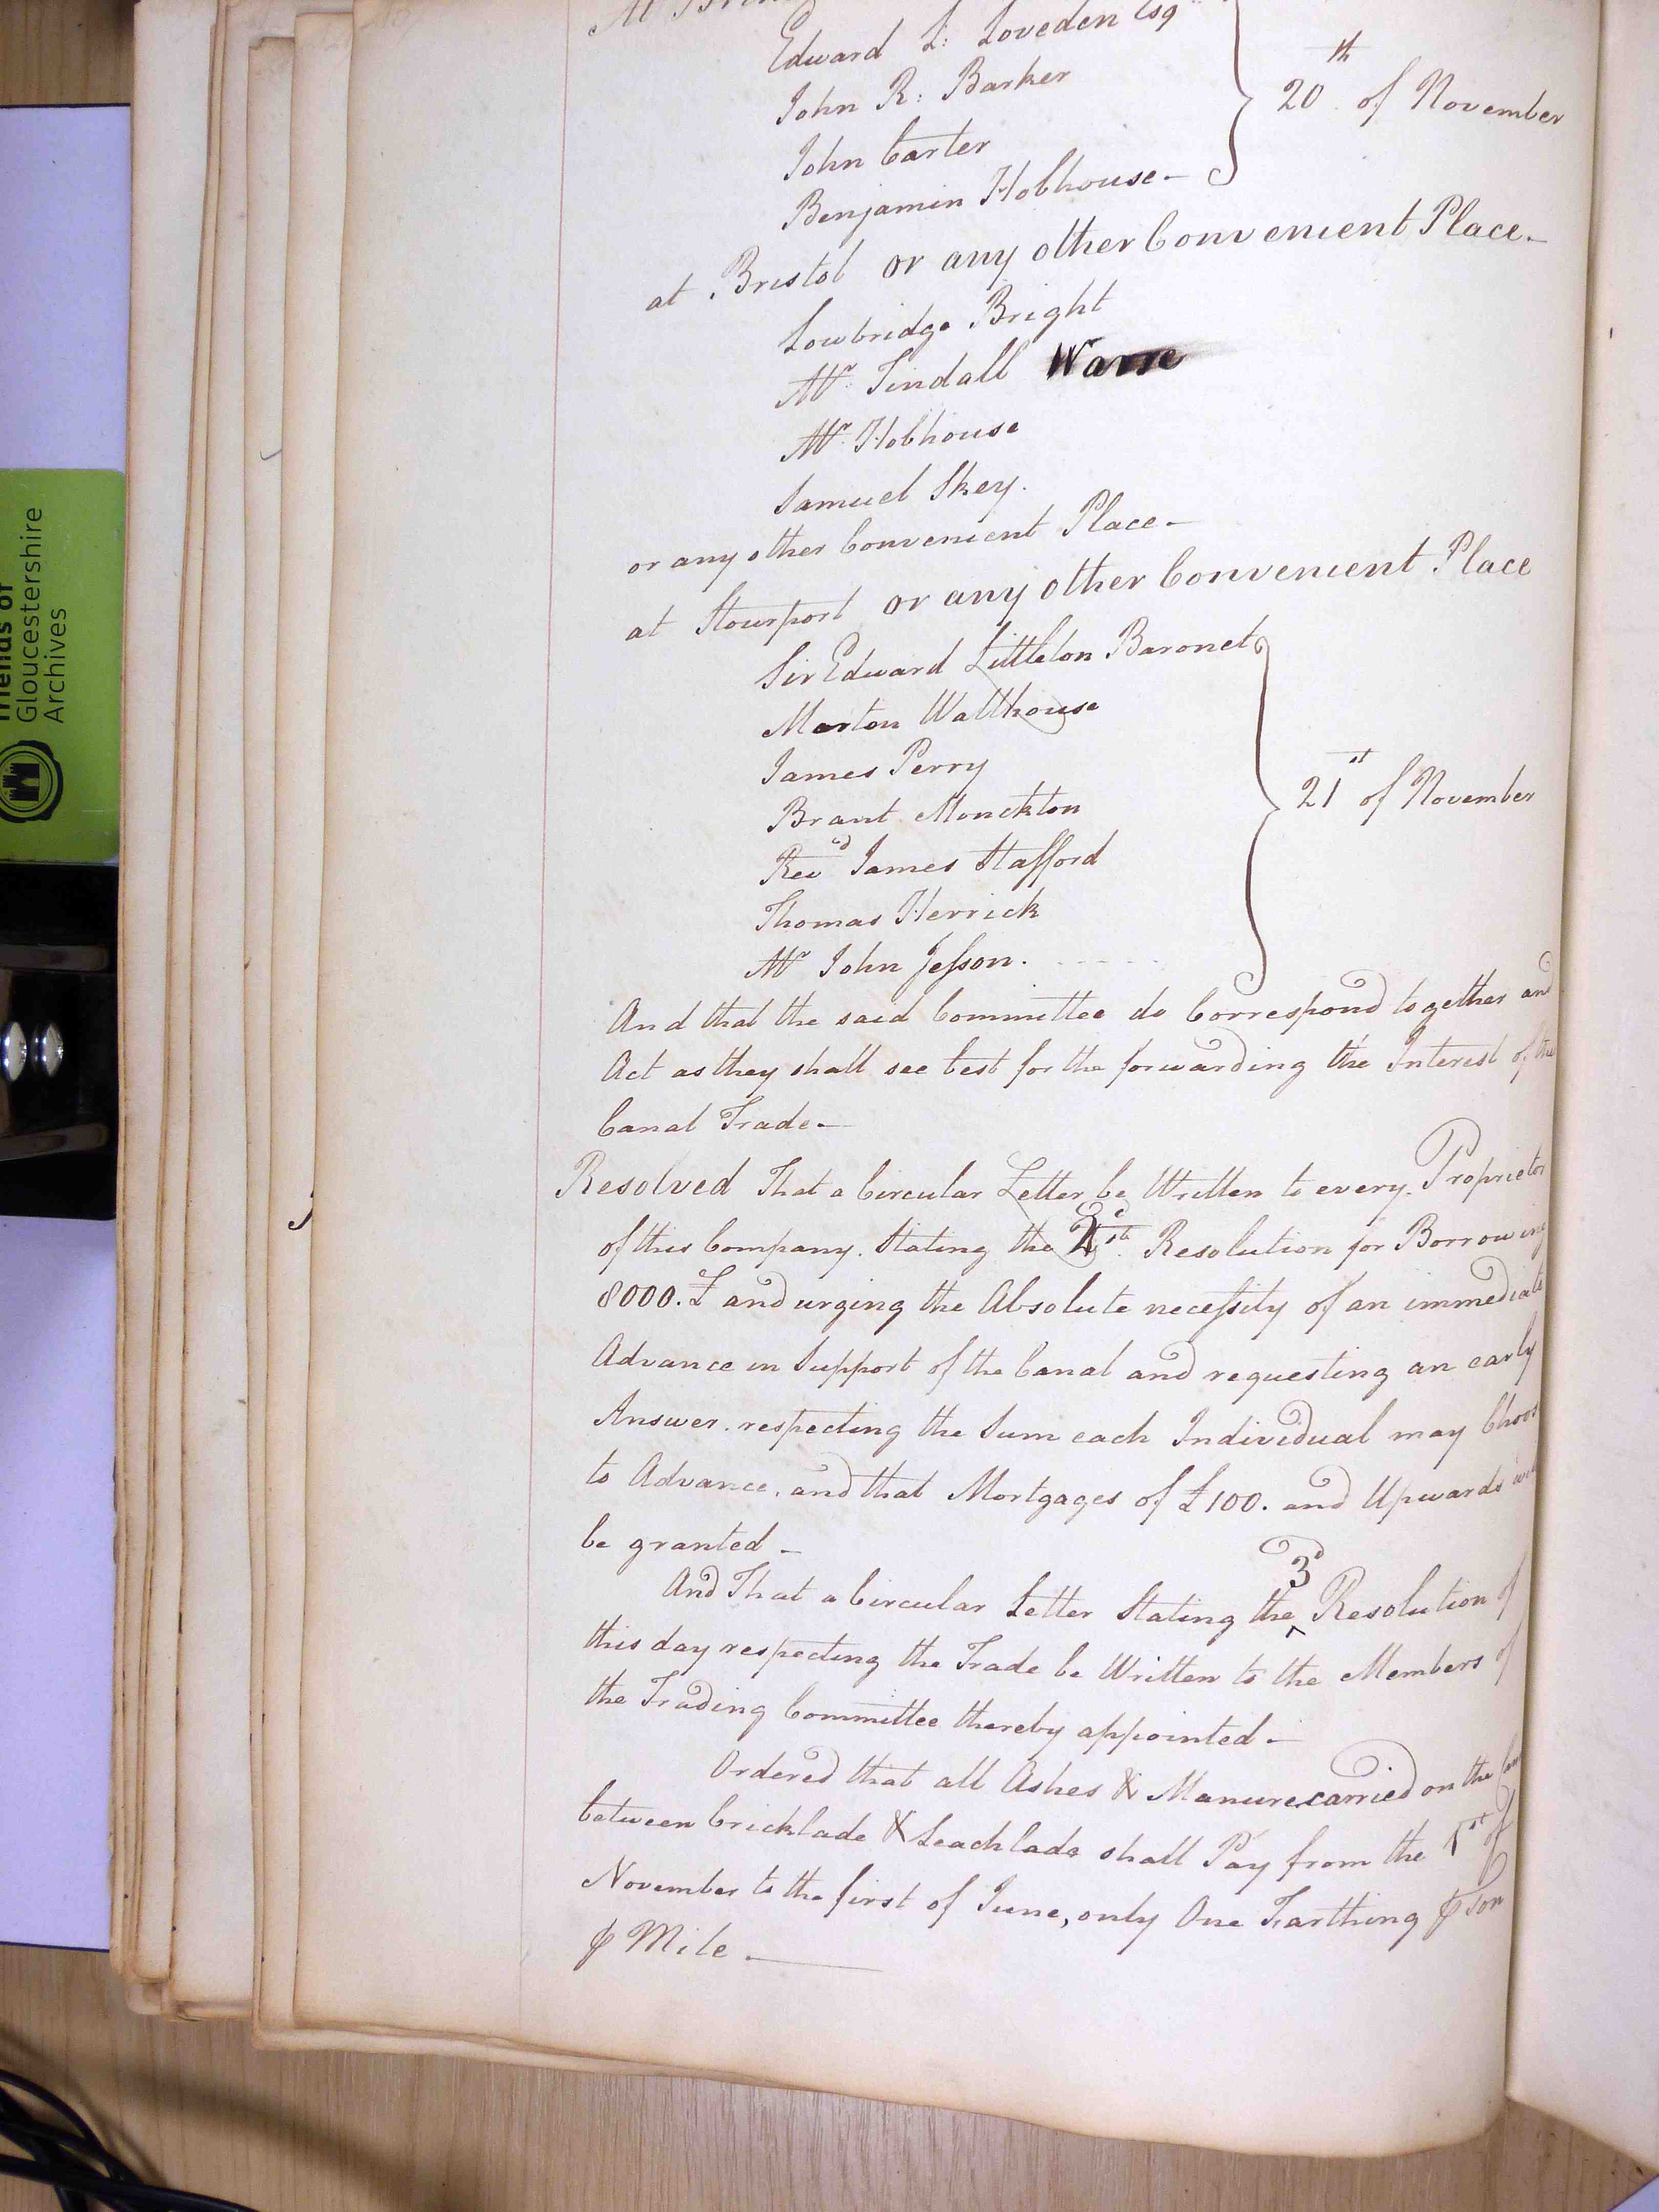 Edward L: Loveden Esqr
John R: Barker
John Carter
Benjamin Hobhouse -
20th of November
at Bristol or any other Convenient Place -
Lowbridge Bright
Mr Tindall
Mr Hobhouse
Samuel Skey.
or any other Convenient Place -
at Stourport or any other Convenient Place
Sir Edward Littleton Baronet
Morton Walthouse
James Perry
Brant Monckton
Revd James Stafford
Thomas Herrick
Mr John Jesson.
21st of November
And that the said Committee do Correspond together and
Act as they shall see best for the forwarding the Interest of the
Canal Trade -
Resolved That a Circular Letter be Written to every Proprietor
of this Company. Stating the 2d Resolution for Borrowing
8000.£ and urging the Absolute necessity of an immediate
Advance in Support of the Canal and requesting an early
Answer. respecting the Sum each Individual may Choose
to Advance. and that Mortgages of £100. and Upwards will
be granted -
And That a Circular Letter Stating the 3d Resolution of
this day respecting the Trade be Written to the Members of
the Trading Committee thereby appointed -
Ordered that all Ashes & Manure carried on the
between Cricklade & Leachlade shall Pay from the 1st of
November to the first of June, only One Farthing ⅌ Ton
⅌ Mile -
Friends of
Gloucestershire
Archives